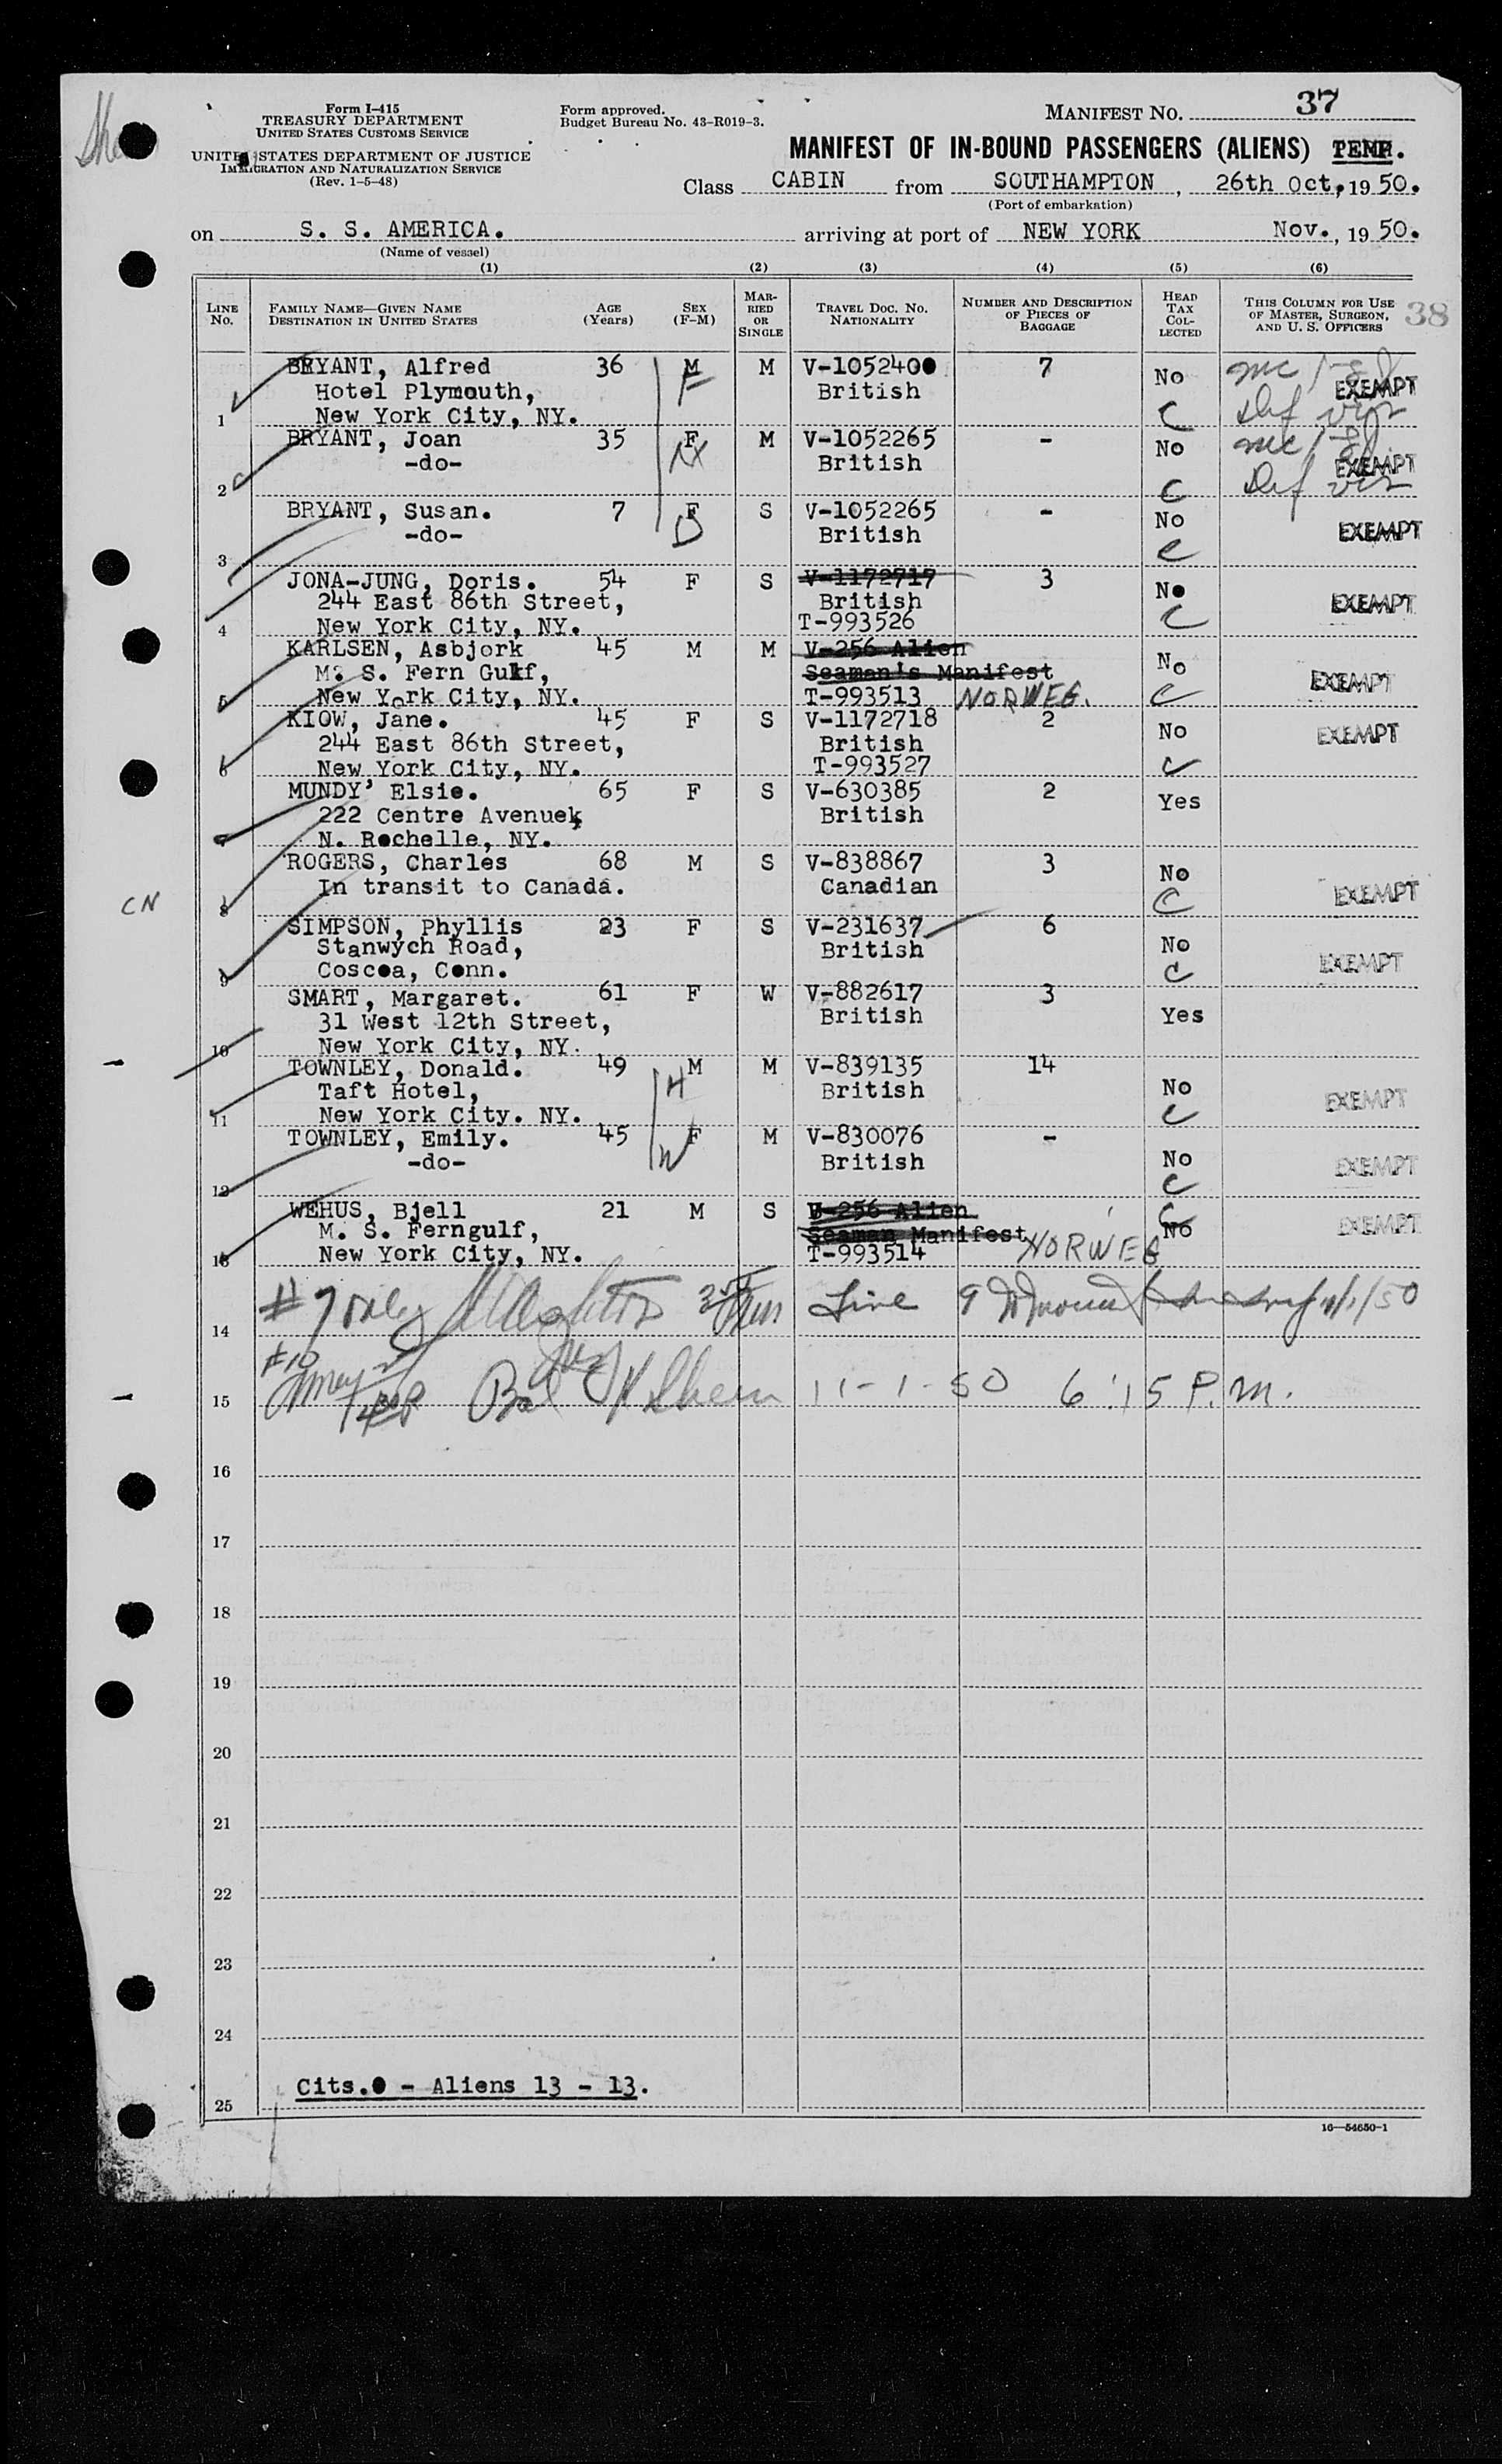 Form I-415
TREASURY DEPARTMENT
UNITED STATES CUSTOMS SERVICE
UNITED STATES DEPARTMENT OF JUSTICE
IMMIGRATION AND NATURALIZATION SERVICE
(Rev. 1-5-48)
Form approved.
Budget Bureau No. 43-R019-3.
MANIFEST NO. 37
MANIFEST OF IN-BOUND PASSENGERS (ALIENS) TEMP.
Class CABIN from SOUTHAMPTON, 26th Oct, 1950.
(Port of embarkation)
on S. S. AMERICA. arriving at port of NEW YORK Nov., 1950.
(Name of vessel)
(1) (2) (3) (4) (5) (6)
LINE No. FAMILY NAME—GIVEN NAME DESTINATION IN UNITED STATES AGE (Years) SEX (F-M) MARRIED OR SINGLE TRAVEL DOC. NO. NATIONALITY NUMBER AND DESCRIPTION OF PIECES OF BAGGAGE HEAD TAX COLLECTED THIS COLUMN FOR USE OF MASTER, SURGEON, AND U. S. OFFICERS 38
BRYANT, Alfred 36 M M V-1052400 7 No
Hotel Plymouth, F British EXEMPT
1 New York City, NY. C
BRYANT, Joan 35 F M V-1052265 - No
-do- British EXEMPT
2 C
BRYANT, Susan. 7 F S V-1052265 - No EXEMPT
-do- D British
3 C
JONA-JUNG, Doris. 54 F S V-1172717 3 No
244 East 86th Street, British EXEMPT
4 New York City, NY. T-993526 C
KARLSEN, Asbjork 45 M M V-256 Alien No
M. S. Fern Gulf, Seaman's Manifest EXEMPT
5 New York City, NY. T-993513 NORWEG. C
KIOW, Jane. 45 F S V-1172718 2 No EXEMPT
244 East 86th Street, British
6 New York City, NY. T-993527 C
MUNDY' Elsie. 65 F S V-630385 2 Yes
222 Centre Avenue, British
7 N. Rochelle, NY.
ROGERS, Charles 68 M S V-838867 3 No
In transit to Canada. Canadian EXEMPT
CN 8 C
SIMPSON, Phyllis 23 F S V-231637 6 No
Stanwych Road, British EXEMPT
9 Coscoa, Conn. C
SMART, Margaret. 61 F W V-882617 3
31 West 12th Street, British Yes
10 New York City, NY.
TOWNLEY, Donald. 49 M M V-839135 14 No
Taft Hotel, H British EXEMPT
11 New York City. NY. C
TOWNLEY, Emily. 45 F M V-830076 - No
-do- W British EXEMPT
12 C
WEHUS, Bjell 21 M S V-256 Alien C
M. S. Ferngulf, Seaman Manifest No EXEMPT
13 New York City, NY. T-993514 NORWEG
#7 only Line 9 11/1/50
14
#10
15 11-1-50 6:15 P.M.
16
17
18
19
20
21
22
23
24
Cits.0 - Aliens 13 - 13.
25
16—54650-1